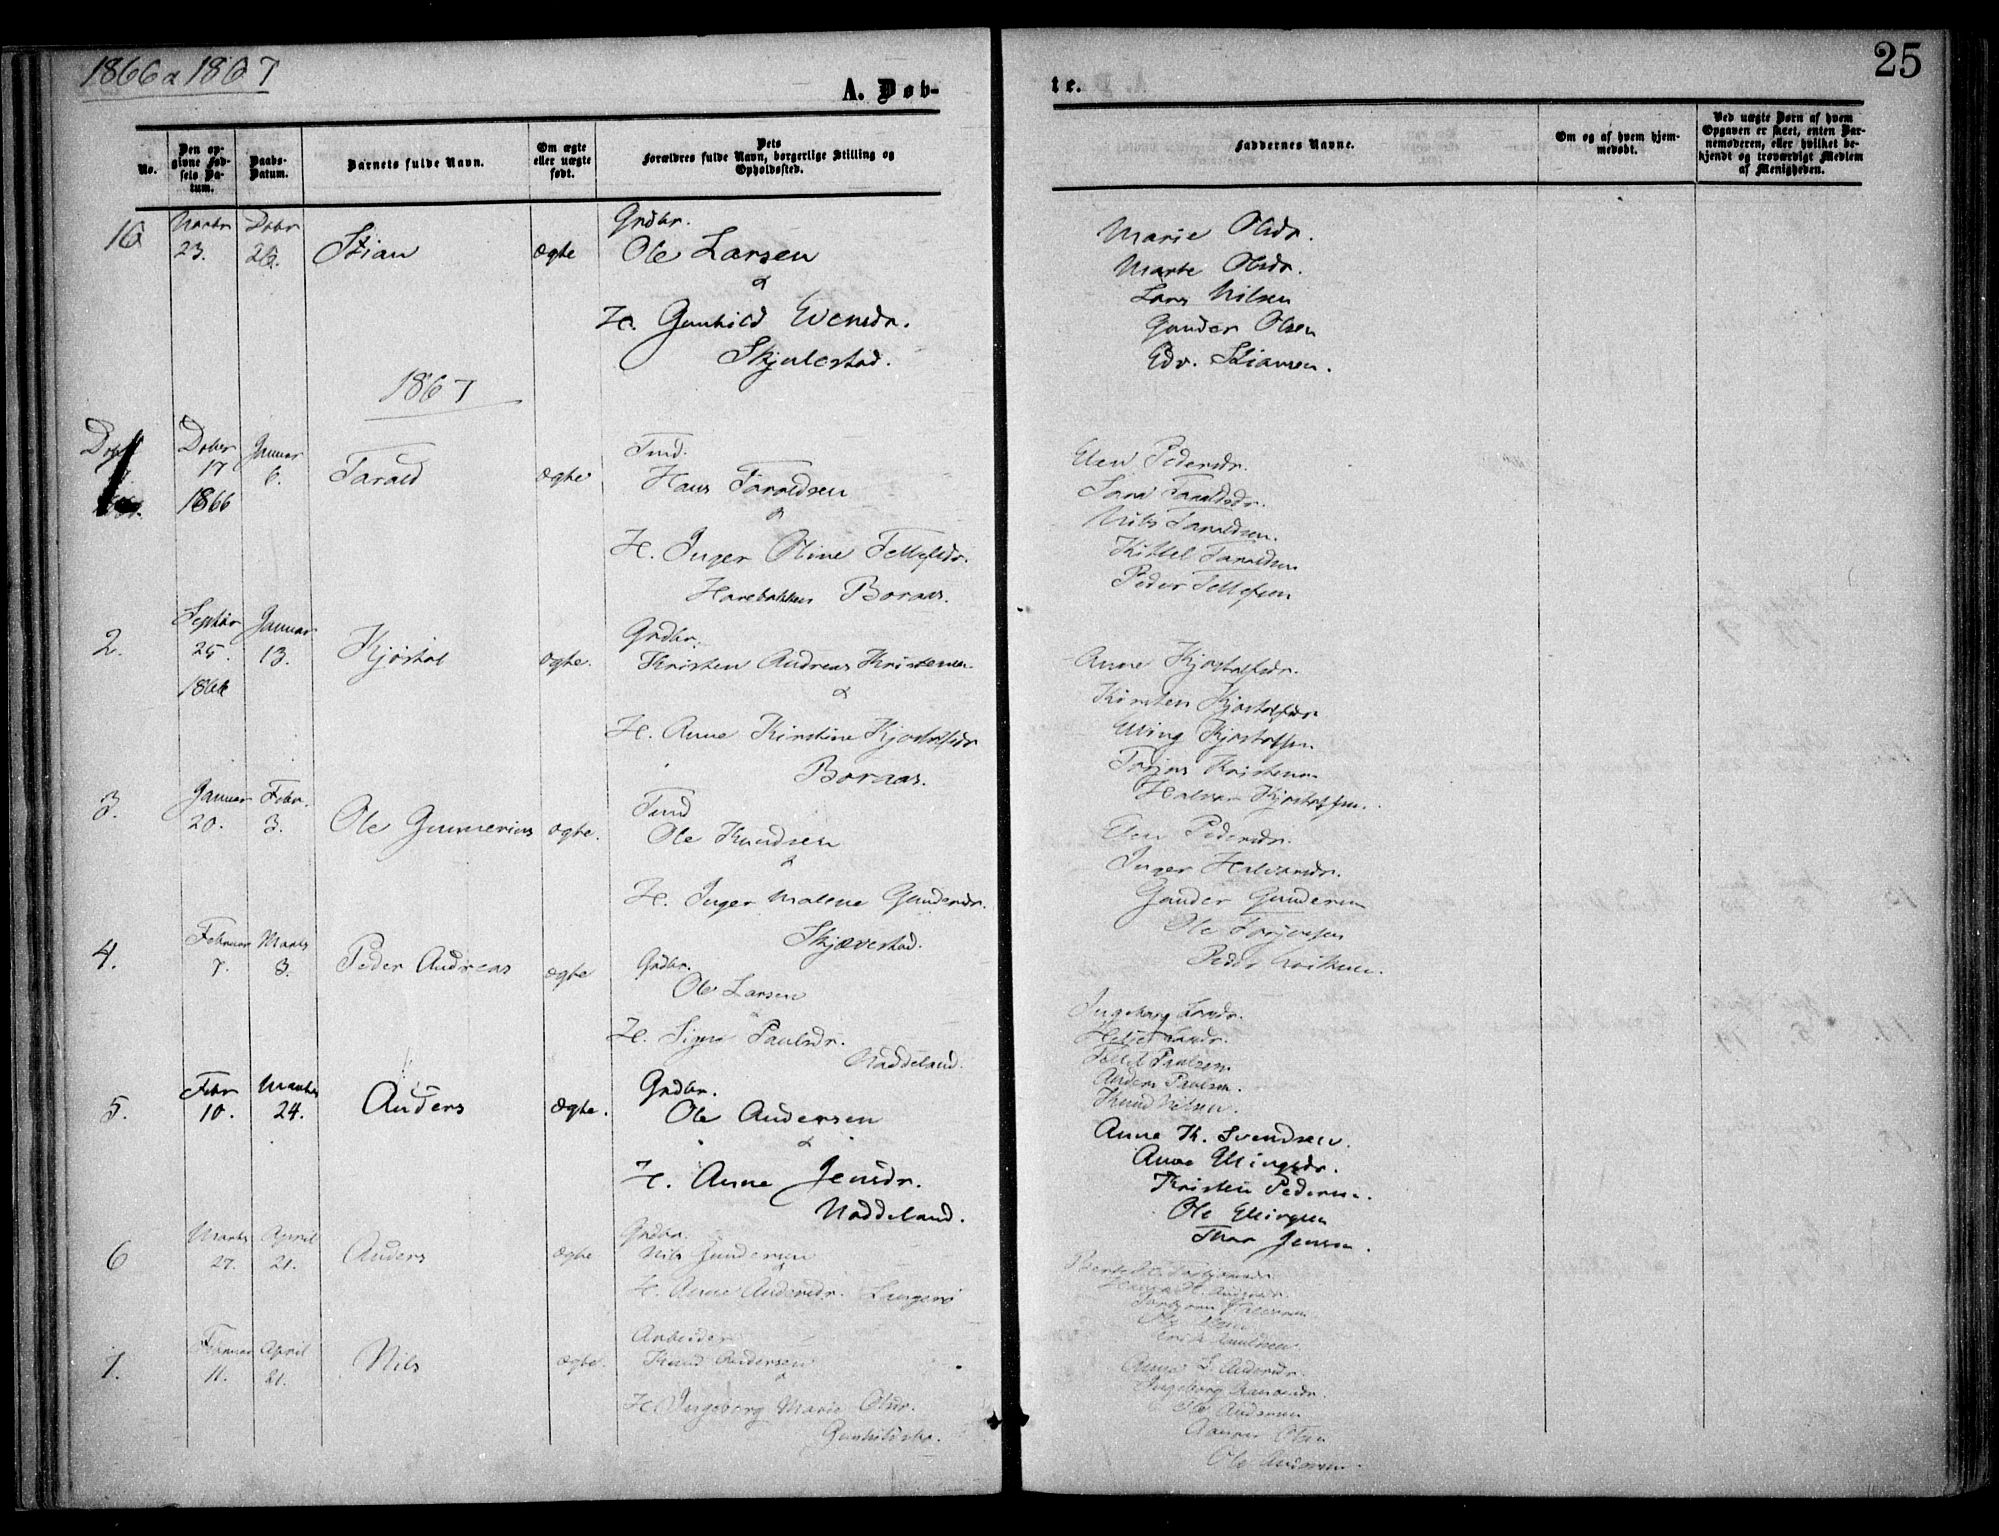 1866 & 1867
A. Døb-
te.
25
No.
Den op-
givne Fød-
sels Da-
tum.
Daabs-
Datum.
Barnets fulde Navn.
Om ægte
eller uægte
født.
Dets
Forældres fulde Navn, borgerlige Stilling og
Opholdssted.
Faddernes Navne.
Om og af hvem hjem-
medøbt.
Ved uægte Børn af hvem
Opgaven er skeet, enten Bar-
nemoderen, eller hvilket be-
kjendt og troværdigt Medlem
af Menigheden.
16
Novbr
23.
Dcbr
26.
Stian
ægte
Grdbr.
Ole Larsen
&
H. Gunhild Evensdr.
Skjulestad.
Marie Olsdr.
Marte Olsdr.
Lars Nilsen
Gunder Olsen
Edv. Stiansen.
1867
1
Dcber
17
1866
Januar
6.
Tarald
ægte
Tmd.
Hans Taraldsen
&
H. Inger Oline Tellefsdr.
Harebakken Boraas.
Elen Pedersdr.
Sara Taraldsdr.
Nils Taraldsen.
Kittel Taraldsen
Peder Tellefsen
2.
Septbr
25.
1866
Januar
13.
Kjøstol
ægte.
Grdbr.
Kristen Andreas Kristensen
&
H. Anne Kirstine Kjøstolfsdr
Boraas.
Anne Kjøstolfsdr.
Kirsten Kjøstolfsdr
Elling Kjøstolfsen
Torjus Kristensen
Halvor Kjøstolfsen.
3.
Januar
20.
Febr.
3.
Ole Gunnerius
ægte.
Tmd
Ole Knudsen
&
H. Inger Malene Gundersdr.
Skjævestad.
Elen Pedersdr.
Inger Halvorsdr.
Gunder Gundersen
Ole Torjussen
Peder
4.
Februar
7.
Marts
3.
Peder Andreas
ægte
Grdbr.
Ole Larsen
&
H. Signe Paulsdr.
Naddeland.
Ingeborg Larsdr.
Helje Larsdr.
Paulsen
Anders Paulsen.
Knud Nilsen.
5.
Febr
10.
Marts
24.
Anders
ægte.
Grdbr.
Ole Andersen
&
H. Anne Jensdr.
Naddeland.
Anne K. Svendsen.
Anne Ellingsdr.
Kristen Pedersen.
Ole Ellingsen
Thor Jensen.
6
Marts
27.
April
21.
Anders
ægte
Grdbr.
Nils Gundersen
&
H. Anne Andersdr. Langerø
7.
Februar
11.
April
21.
Nils
ægte.
Arbeider
Knud Andersen
&
H. Ingeborg Marie Olsdr.
Anna S. Andersdr.
Ingeborg
Ole Andersen
Olsen
Ole Andersen.